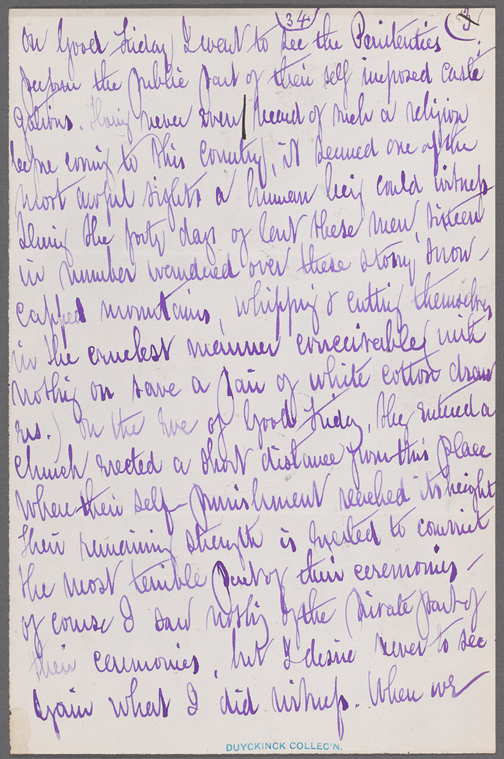 34
3
On Good Friday I went to see the Penitenties
perform the public part of their self imposed casti
gations. Having never even heard of such a religion
before coming to this country, it seemed one of the
most awful sights a human being could witness
During the forty days of lent these men, sixteen
in number wandered over these stony, snow-
capped mountains, whipping & cutting themselves
in the cruelest manner conceivable, with
nothing on save a pair of white cotton draw
ers.) On the Eve of Good Friday, they entered a
church erected a short distance from this place
where their self-punishment reached its height
Their remaining strength is exerted to commit
the most terrible part of their ceremonies -
of course I saw nothing of the private part of
their ceremonies, but I desire never to see
again what I did witness. When we
DUYCKINCK COLLEC'N.